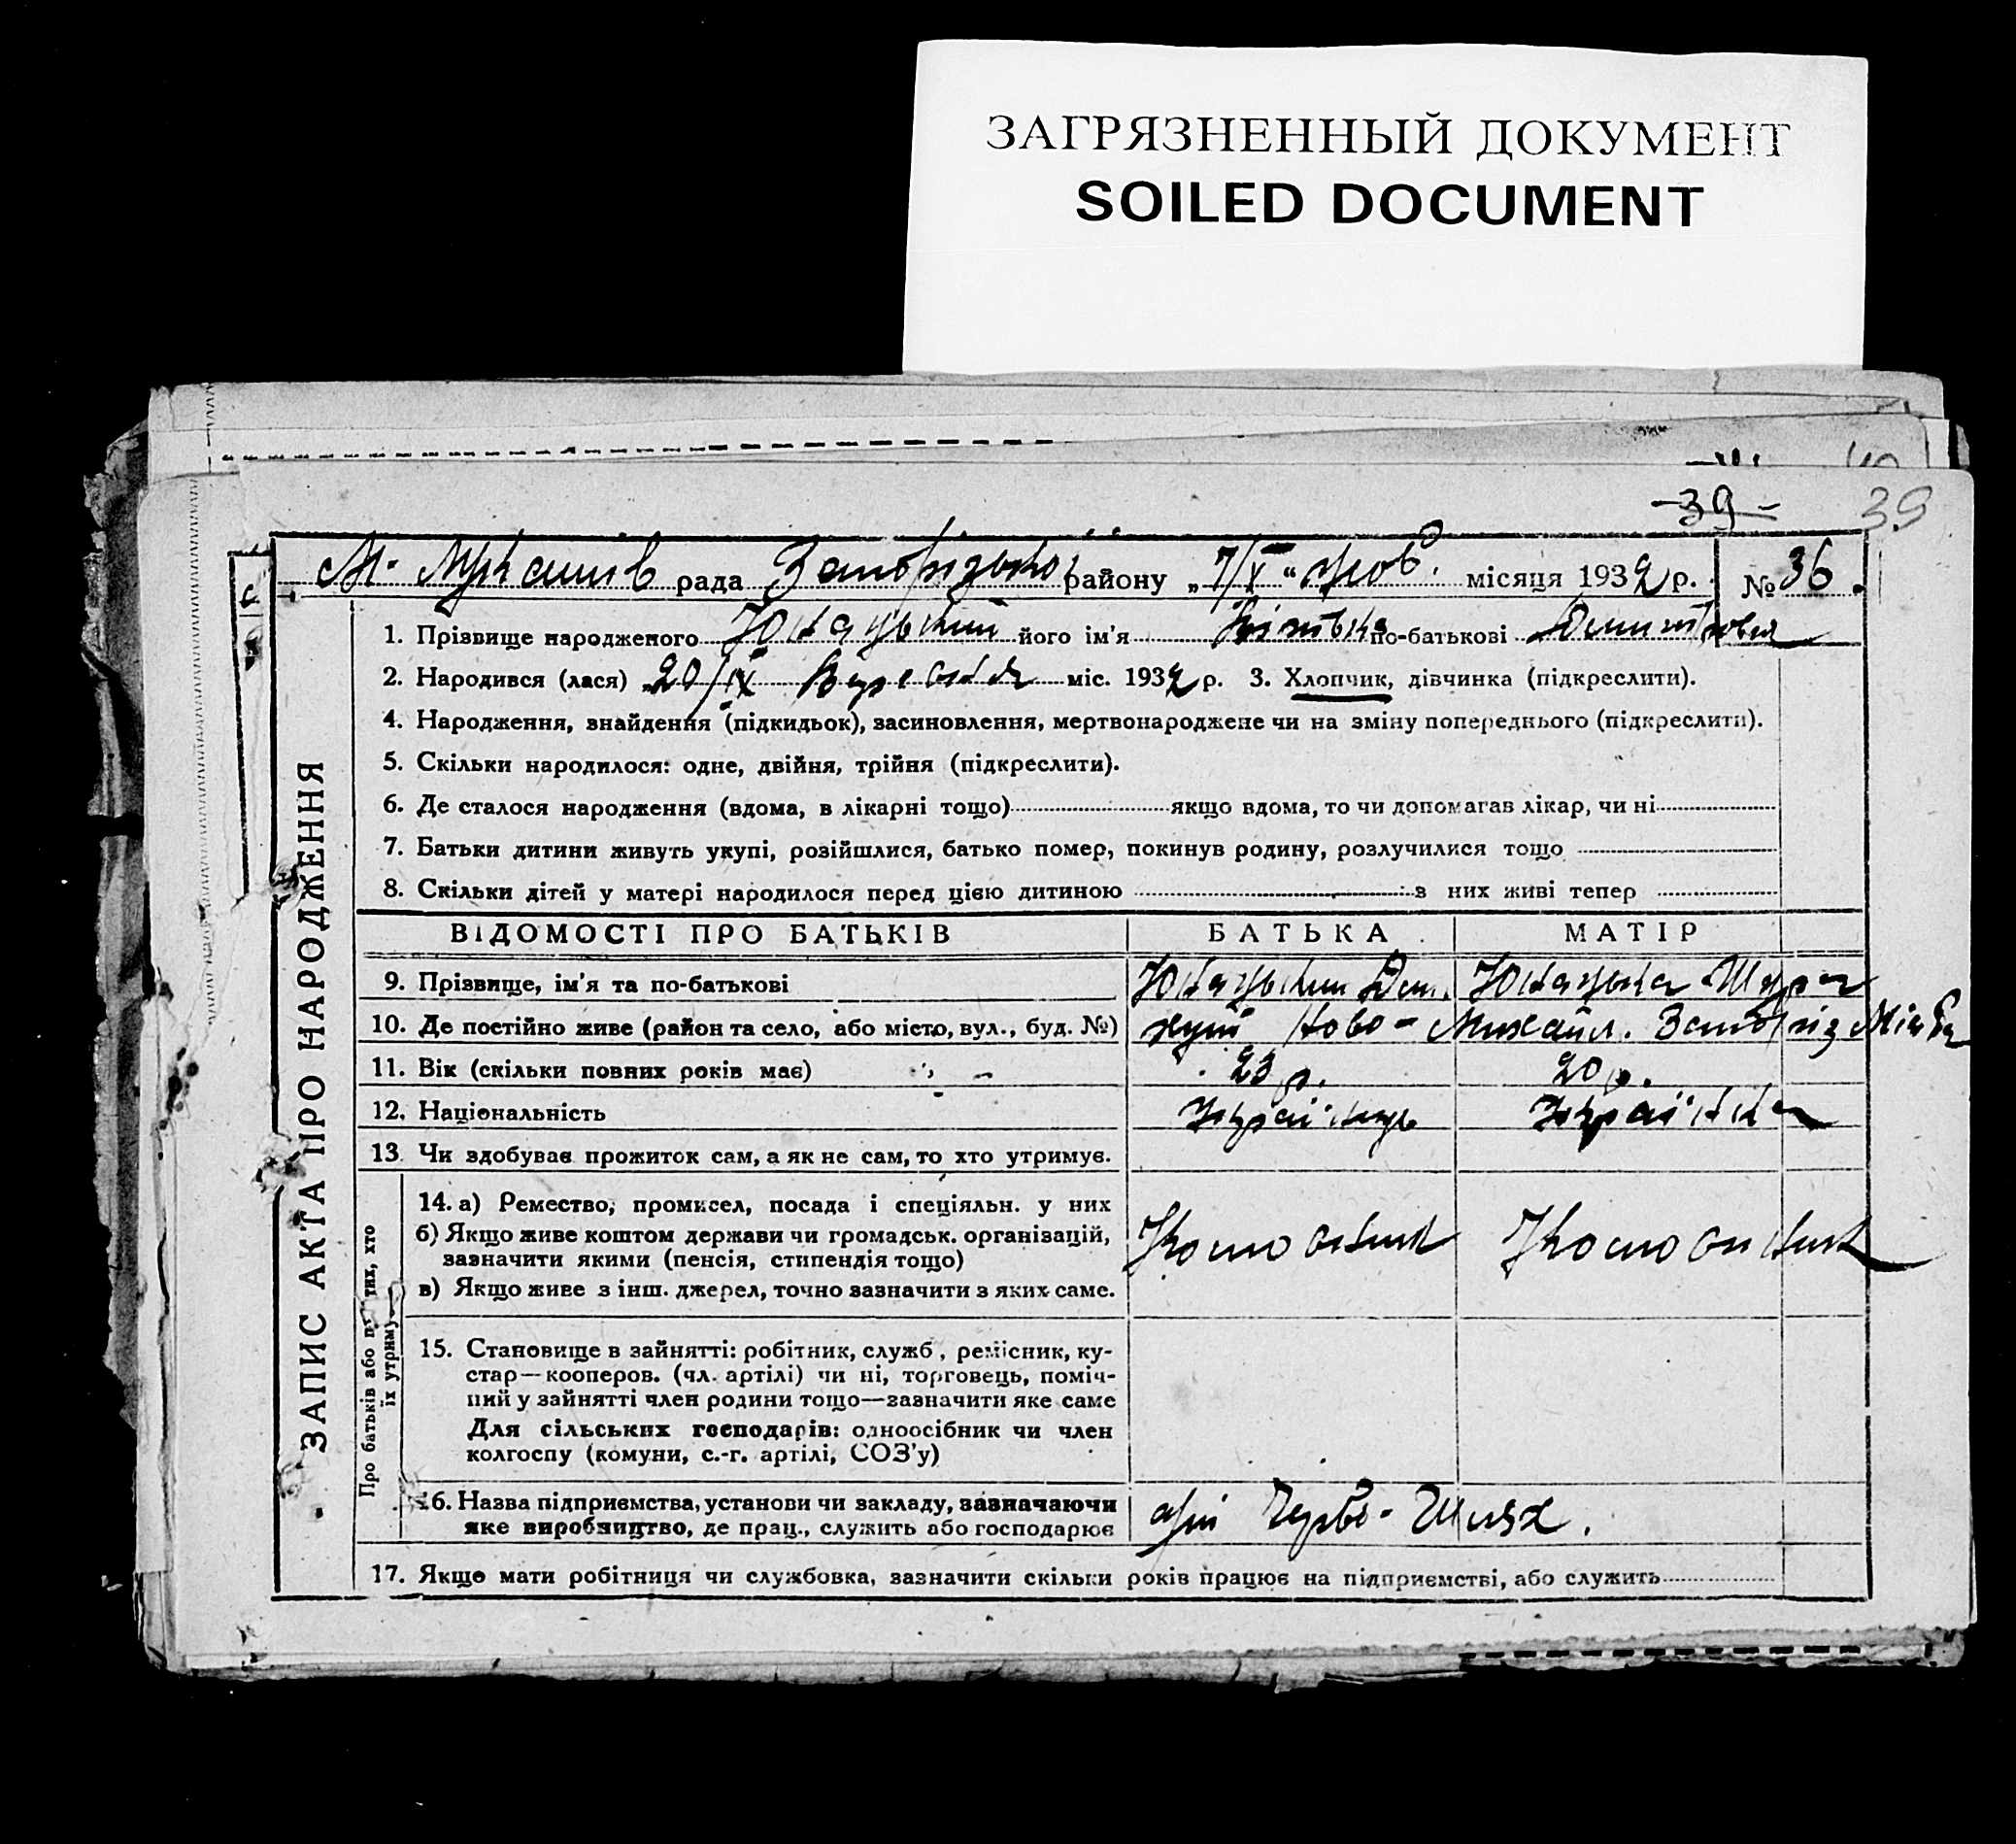 ЗАГРЯЗНЕННЫЙ ДОКУМЕНТ
SOILED DOCUMENT
39
-39-
рада району „7/X“ жов. місяця 1932 р. № 36.
1. Прізвище народженого його ім'я по-батькові
2. Народився (лася) „20/IX Вересня міс. 1932 р. 3. Хлопчик, дівчинка (підкреслити).
4. Народження, знайдення (підкидьок), засиновлення, мертвонароджене чи на зміну попереднього (підкреслити).
5. Скільки народилося: одне, двійня, трійня (підкреслити).
6. Де сталося народження (вдома, в лікарні тощо) якщо вдома, то чи допомагав лікар, чи ні
7. Батьки дитини живуть укупі, розійшлися, батько помер, покинув родину, розлучилися тощо
8. Скільки дітей у матері народилося перед цією дитиною з них живі тепер
ВІДОМОСТІ ПРО БАТЬКІВ БАТЬКА МАТІР
9. Прізвище, ім'я та по-батькові
10. Де постійно живе (район та село, або місто, вул., буд. №) Ново-Михайл.
11. Вік (скільки повних років має) 23 р. 20 р.
12. Національність Українець Українка
13. Чи здобуває прожиток сам, а як не сам, то хто утримує.
14. а) Ремество, промисел, посада і спеціяльн. у них
б) Якщо живе коштом держави чи громадськ. організацій,
зазначити якими (пенсія, стипендія тощо)
в) Якщо живе з інш. джерел, точно зазначити з яких саме.
15. Становище в зайнятті: робітник, служб., ремісник, ку-
стар—кооперов. (чл. артілі) чи ні, торговець, поміч-
ний у зайнятті член родини тощо—зазначити яке саме
Для сільських господарів: одноосібник чи член
колгоспу (комуни, с.-г. артілі, СОЗ'у)
16. Назва підприємства, установи чи закладу, зазначаючи
яке виробництво, де прац., служить або господарює
Черв. Шлях.
17. Якщо мати робітниця чи службовка, зазначити скільки років працює на підприємстві, або служить
ЗАПИС АКТА ПРО НАРОДЖЕННЯ
Про батьків або тих, хто
їх утримує